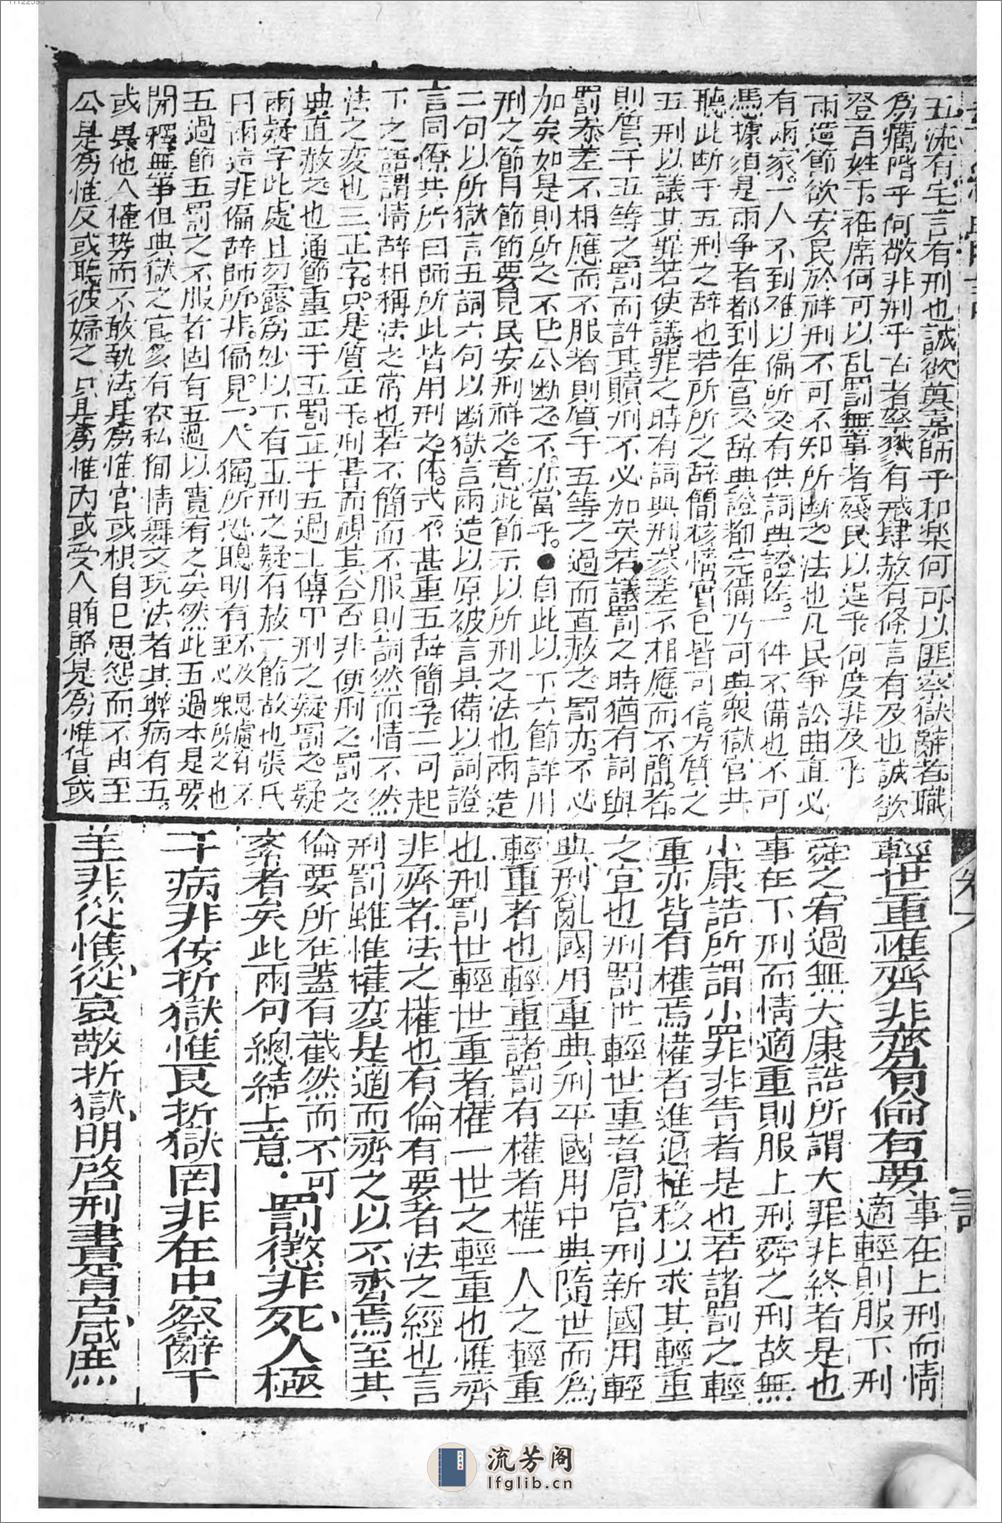 五流有宅言有刑也誠欲奠嘉師乎和樂何可以匪察獄辭者職
爲厲階乎何敬非刑乎古者察獄有戒肆赦有條言有及也誠欲
登百姓于衽席何可以乱罰無事者殘民以逞乎何度非及乎
兩造節欲安民於祥刑不可不知所断之法也凡民争訟曲直必
有兩家一人不到难以偏听又有供詞典證佐一件不備也不可
馮據須是兩争者都到在官又辞典證都完備乃可典衆獄官共
聽此断于五刑之辞也若所听之辞簡核情實已皆可信方質之
五刑以議其罪若使議罪之時有詞與刑参差不相應而不簡者
則質于五等之罰而許其贖刑不必加矣若議罰之時猶有詞與
罰参差不相應而不服者則質于五等之過而直赦之罰亦不必
加矣如是則所之不已公断之不亦當乎●自此以下六節詳用
刑之節目節節要見民安刑祥之意此節示以所刑之法也兩造
二句以所獄言五詞六句以断獄言兩造以原被言具備以詞證
言同僚共所曰師所此皆用刑之体式不甚重五辞簡孚二句起
下之語謂情辞相稱法之常也若不簡而不服則詞然而情不然
法之变也三正字只是質正于刑書而視其合否非便刑之罰之
典直赦之也通節重正于五罰正于五過上傳中刑之疑罰之疑
兩疑字此處且勿露爲妙以下有五刑之疑有赦一節故也張氏
曰兩造非偏辞師所非偏見一人獨所恐聰明有不及思慮有不至必衆所之也
五過節五罰之不服者固有五過以寬宥之矣然此五過本是要
開釋無事但典獄之官亥有狥私狥情舞文玩法者其弊病有五
或畏他人權势而不敢執法是爲惟官或根自已恩怨而不由至
公是爲惟反或聽彼婦之只是爲惟内或受人賄賂是爲惟貨或
輕世重惟齊非齊有倫有要
事在上刑而情
適輕則服下刑
舜之宥過無大康誥所謂大罪非終者是也
事在下刑而情適重則服上刑舜之刑故無
小康誥所謂小罪非眚者是也若諸罰之輕
重亦皆有權焉權者進退推移以求其輕重
之宜也刑罰世輕世重者周官刑新國用輕
典刑亂國用重典刑平國用中典隨世而爲
輕重者也輕重諸罰有權者權一人之輕重
也刑罰世輕世重者權一世之輕重也惟齊
非齊者法之權也有倫有要者法之經也言
刑罰雖惟權变是適而齊之以不齊焉至其
倫要所在蓋有截然而不可
紊者矣此兩句總結上意
罰懲非死人極
于病非佞折獄惟良折獄罔非在中察辭于
差非從惟從哀敬折獄明啓刑書胥占咸庶
卷六
流芳阁
lfglib.cn